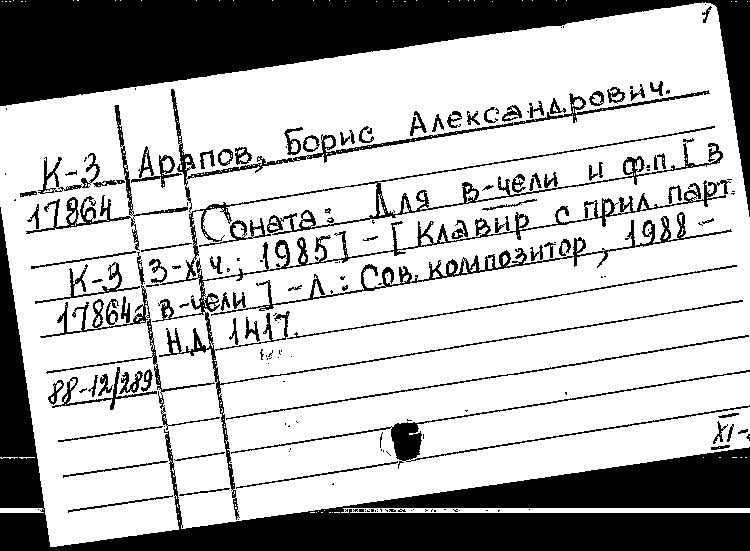 1
К-3 Арапов, Борис Александрович.
17864 Соната: Для в-чели и ф.п. [в
К-3 3-х ч.; 1985] - [Клавир с прил. парт.
17864а в-чели] - Л.: Сов. композитор, 1988 -
Н.Д. 1417.
88-12/289
XI-